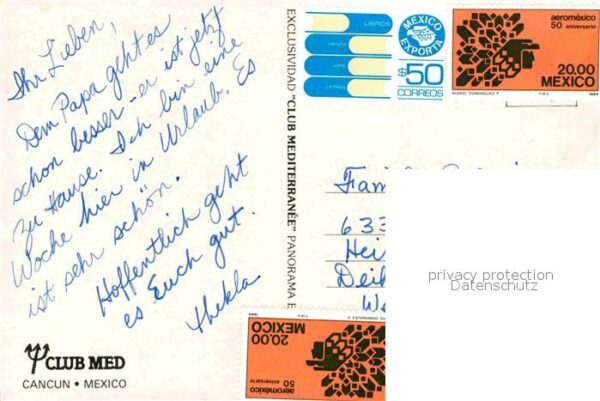 Ihr Lieben,
Dem Papa geht es
schon besser – er ist jetzt
zu Hause. Ich bin eine
Woche hier in Urlaub. Es
ist sehr schön.
Hoffentlich geht
es Euch gut.
Thekla
CLUB MED
CANCUN • MEXICO
EXCLUSIVIDAD "CLUB MEDITERRANÉE" PANORAMA
LIBROS
CIENCIA
ARTE
LETRAS
MEXICO
EXPORTA
$50
CORREOS
aeroméxico
50 aniversario
20.00
MEXICO
1984
Fam
633
Hei
Dei
privacy protection
Datenschutz
20.00
MEXICO
aeroméxico
50 aniversario
1984